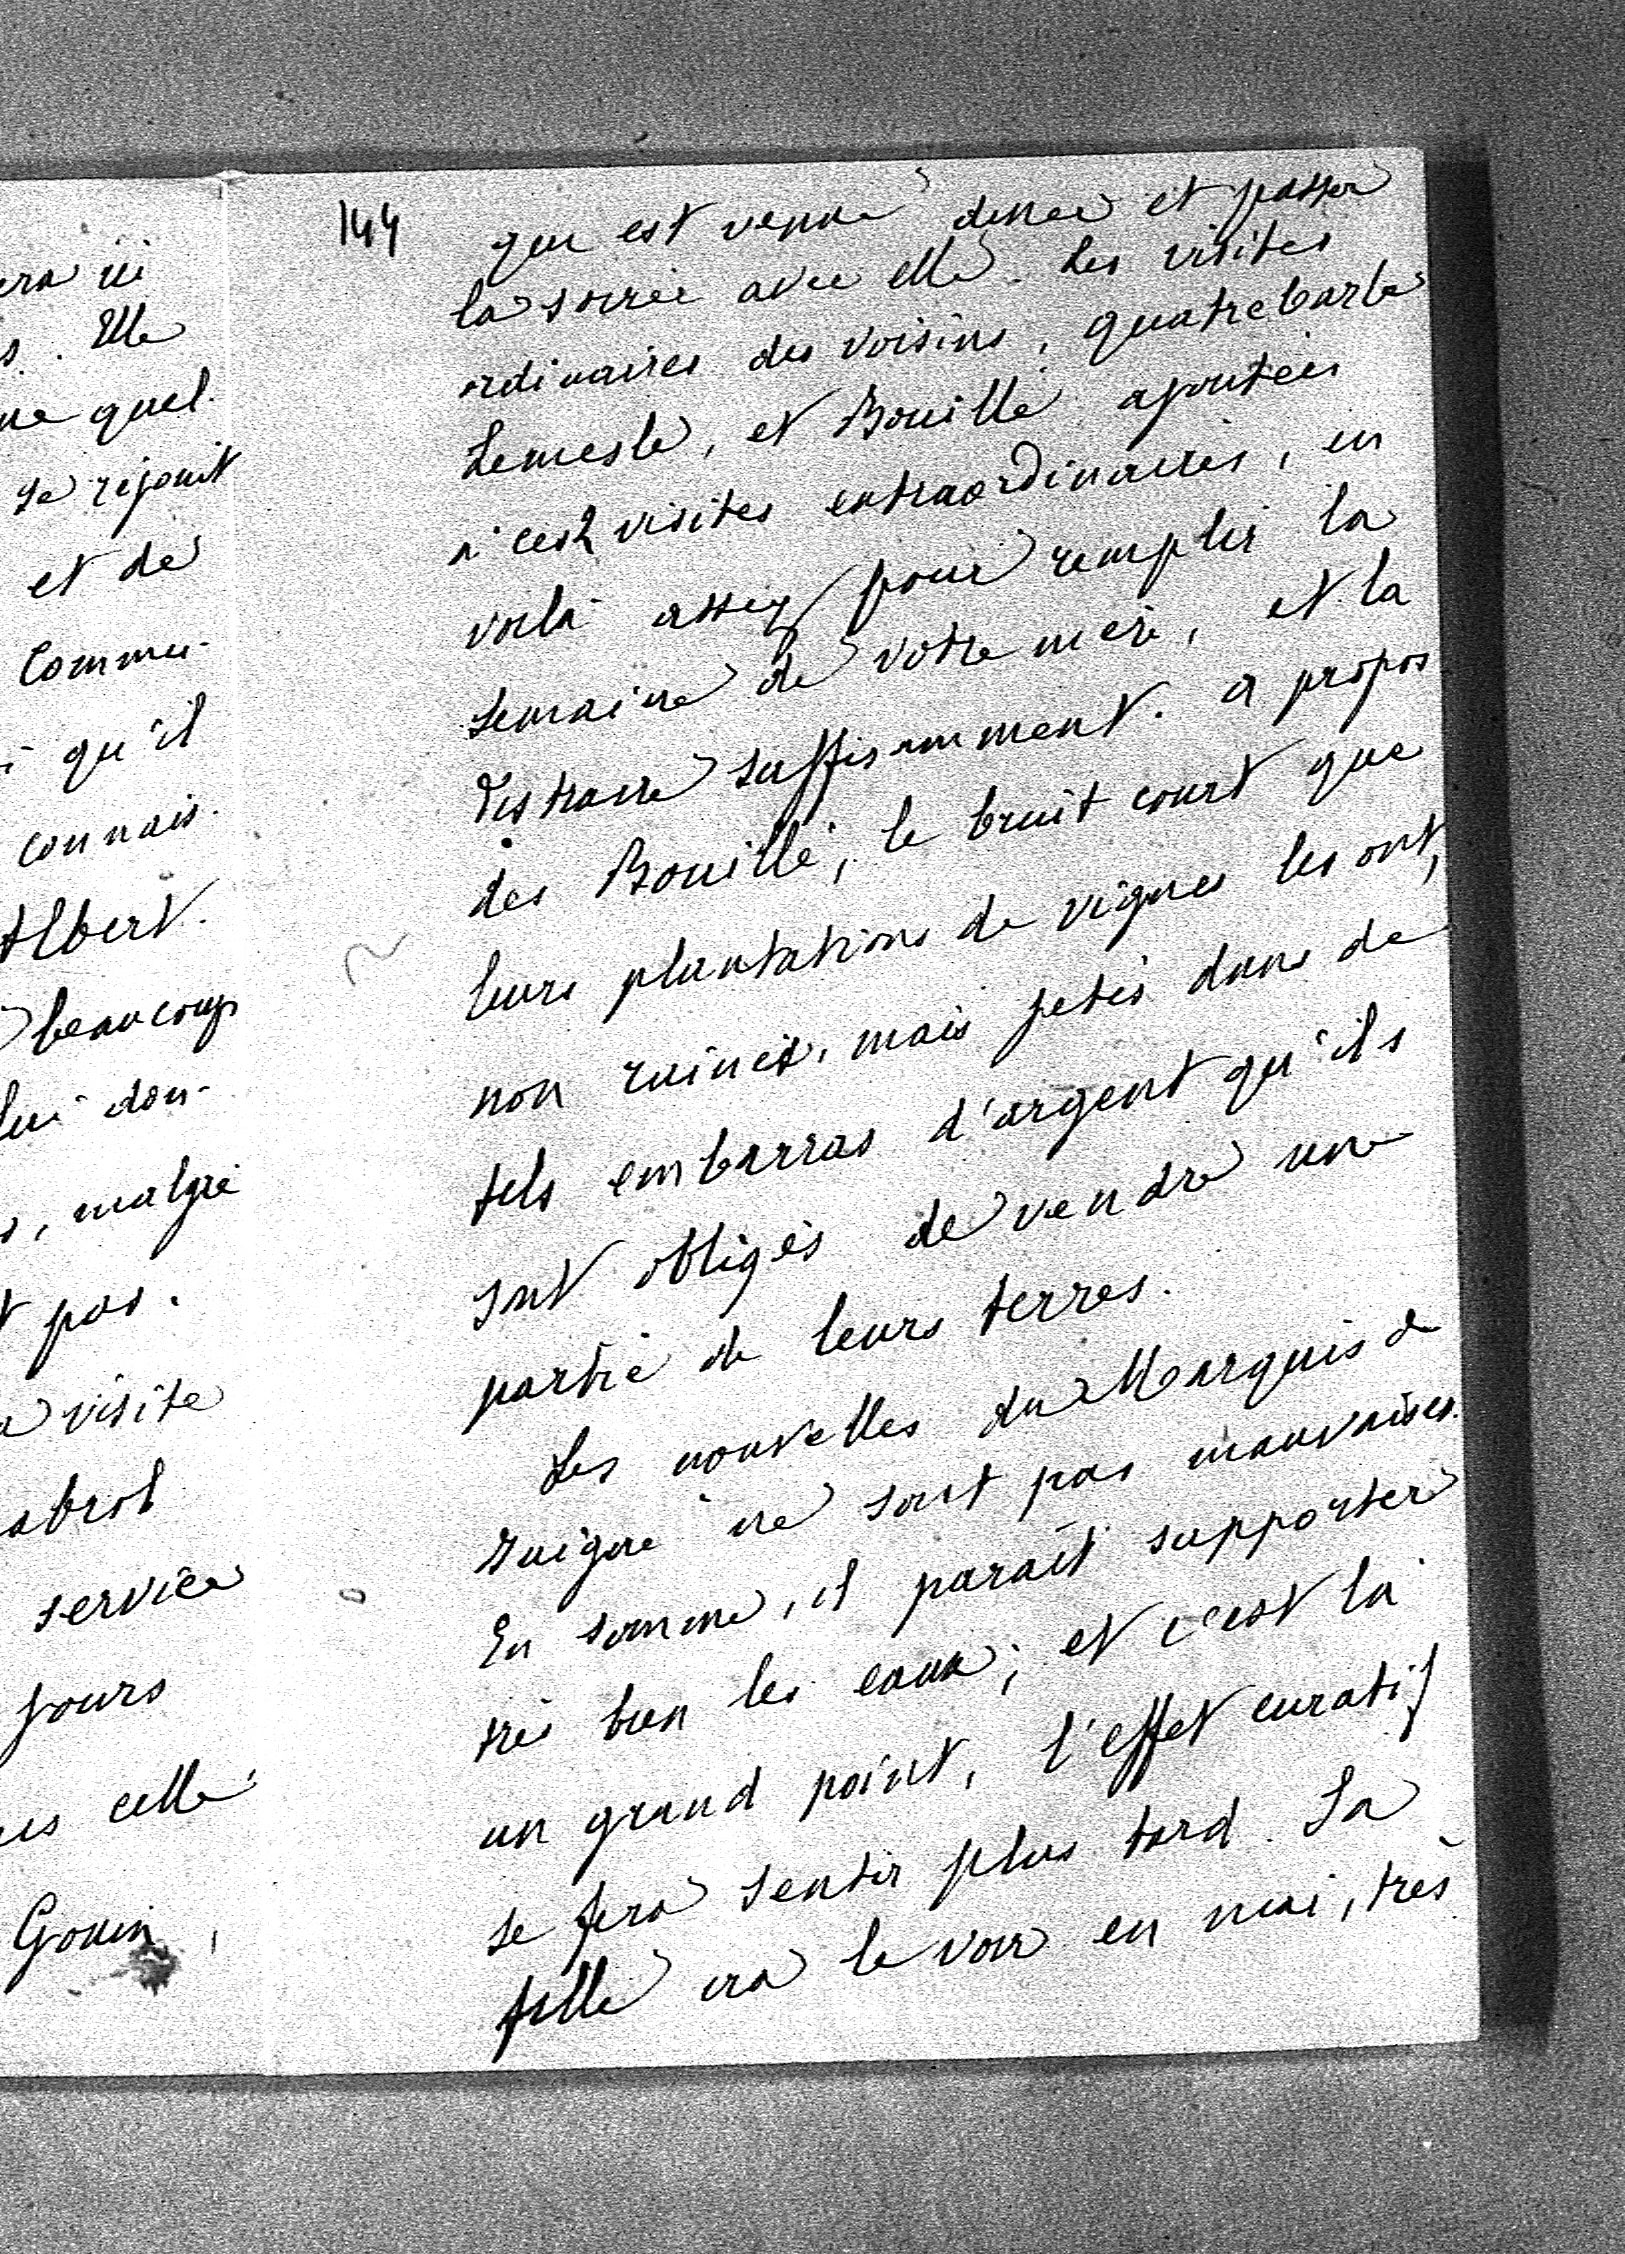 era ici
s. Elle
ne quel.
se réjouit
et de
Commu-
qu'il
connais.
Albert.
beaucoup
lui don-
s, malgré
t pas.
a visite
abrol
service
jours
es celle
Gouin,
144
qui est venue diner et passer
la soirée avec elle. Les visites
ordinaires des voisins, quatrebarbe
Lemesle, et Bouillé ajoutées
à ces 2 visites extraordinaires, en
voilà assez pour remplir la
semaine de votre mère, et la
distraire suffisamment. a propos
des Bouillé, le bruit court que
leurs plantations de vignes les ont,
non ruinés, mais jetés dans de
tels embarras d'argent qu'ils
sont obligés de vendre une
partie de leurs terres.
Les nouvelles du Marquis de
Juigné ne sont pas mauvaises.
En somme, il paraît supporter
très bien les eaux; et c'est là
un grand point, l'effet curatif
se fera sentir plus tard. Sa
fille ira le voir en mai, très